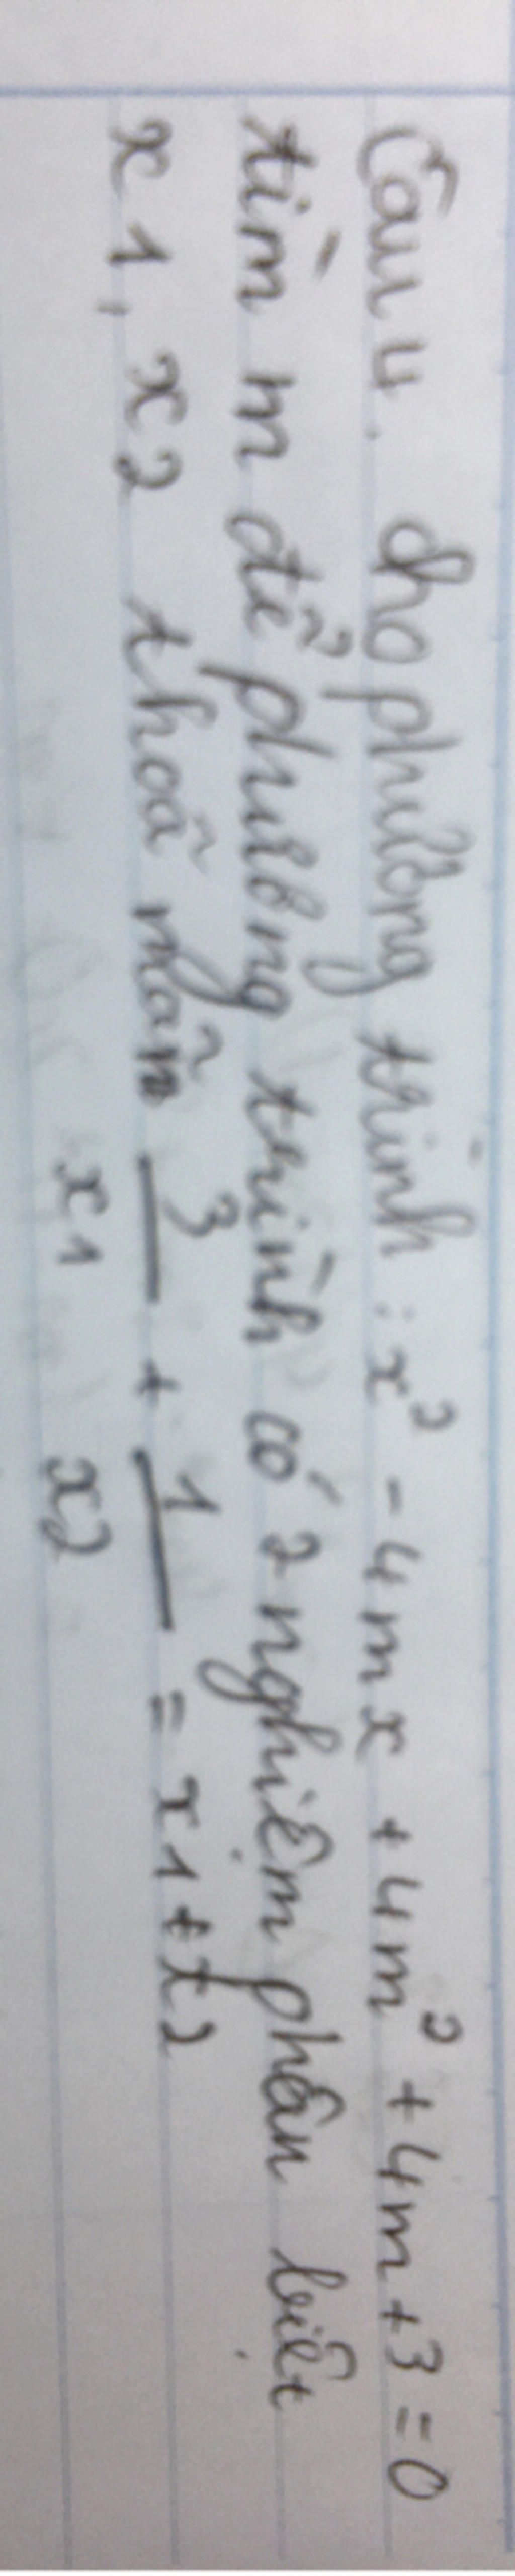 Câu 4. Cho phương trình : x² - 4mx + 4m² + 4m + 3 = 0
tìm m để phương trình có 2 nghiệm phân biệt
x1, x2 thoã mãn 3/x1 + 1/x2 = x1 + x2